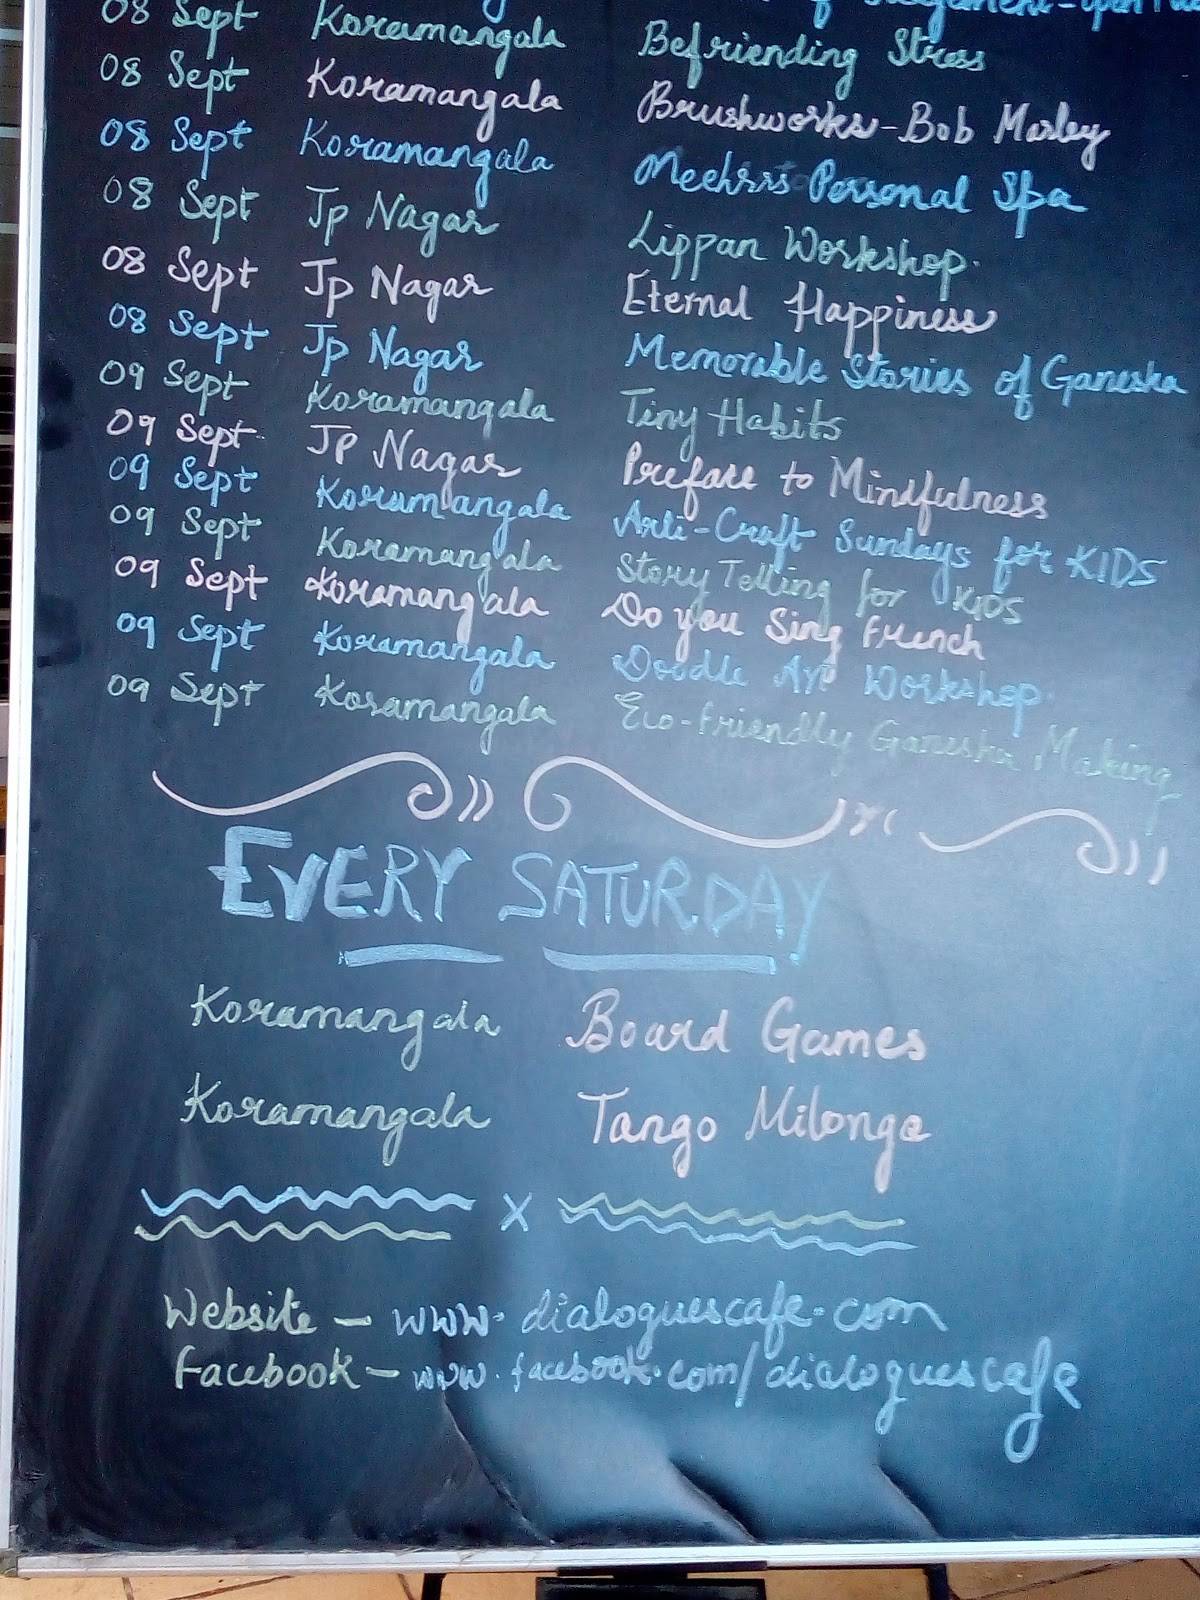 08 Sept Koramangala Befriending Stress
08 Sept Koramangala Brushworks-Bob Marley
08 Sept Koramangala Personal Spa
08 Sept Jp Nagar Lippan Workshop.
08 Sept Jp Nagar Eternal Happiness
08 Sept Jp Nagar Memorable Stories of Ganesha
09 Sept Koramangala Tiny Habits
09 Sept JP Nagar Preface to Mindfulness
09 Sept Koramangala Arti-Craft Sundays for KIDS
09 Sept Koramangala Story Telling for KIDS
09 Sept Koramangala Do you Sing French
09 Sept Koramangala Doodle Art Workshop.
09 Sept Koramangala Eco-friendly Ganesha Making
EVERY SATURDAY
Koramangala Board Games
Koramangala Tango Milonga
x
Website - www.dialoguescafe.com
Facebook - www.facebook.com/dialoguescafe